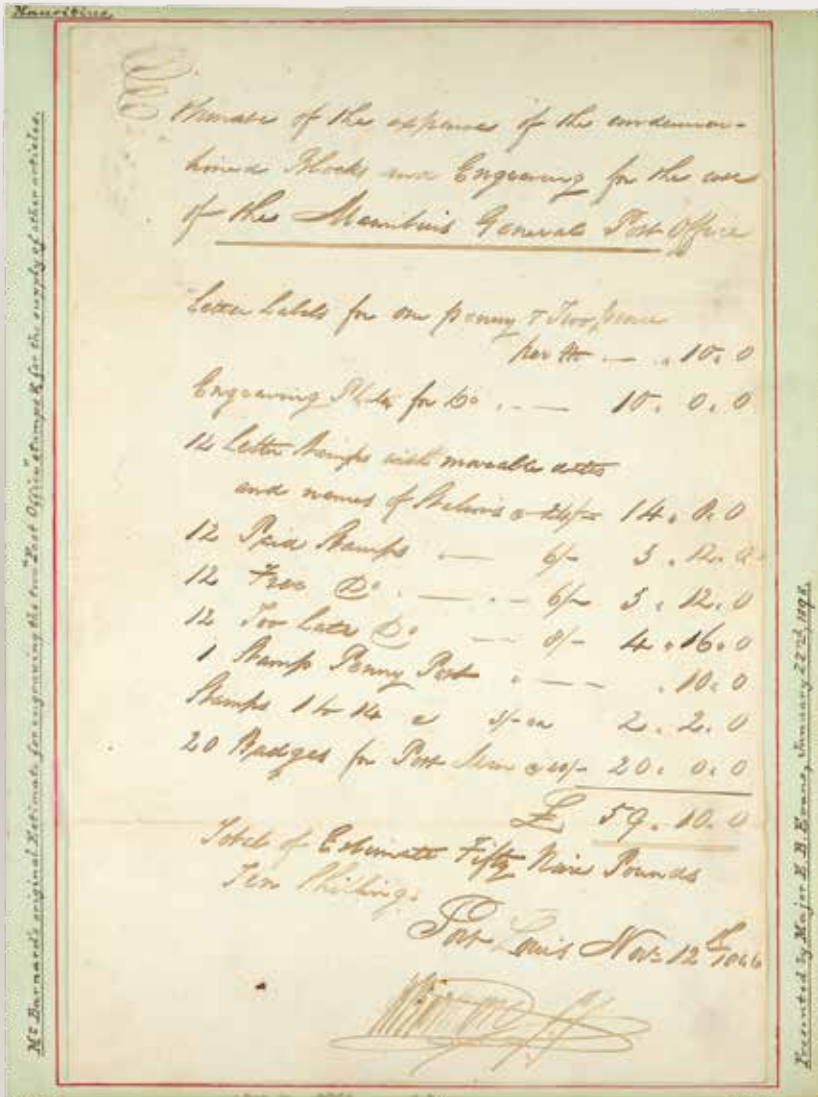 Mauritius.
Mr Barnard's original Estimate for engraving the two "Post Office" stamps & for the supply of other articles.
Estimate of the expense of the undermen-
tioned Blocks and Engraving for the use
of the Mauritius General Post Office
Letter Labels for one penny & Two pence
per M — . 10. 0
Engraving Plate for Do . — 10. 0. 0
14 Letter Stamps with moveable dates
and names of Stations @ 14. 0. 0
12 Paid Stamps . — 6/- 3. 12. 0
12 Free Do . — . — 6/- 3. 12. 0
12 Too Late Do — 8/- 4. 16. 0
1 Stamp Penny Post . — — . 10. 0
Stamps 1 to 14 @ 3/- ea 2. 2. 0
20 Badges for Post Men @ 20/- 20. 0. 0
£ 59. 10. 0
Total of Estimate Fifty Nine Pounds
Ten Shillings
Port Louis Nov. 12th 1846
Presented by Major E. B. Evans, January 22nd, 1898.